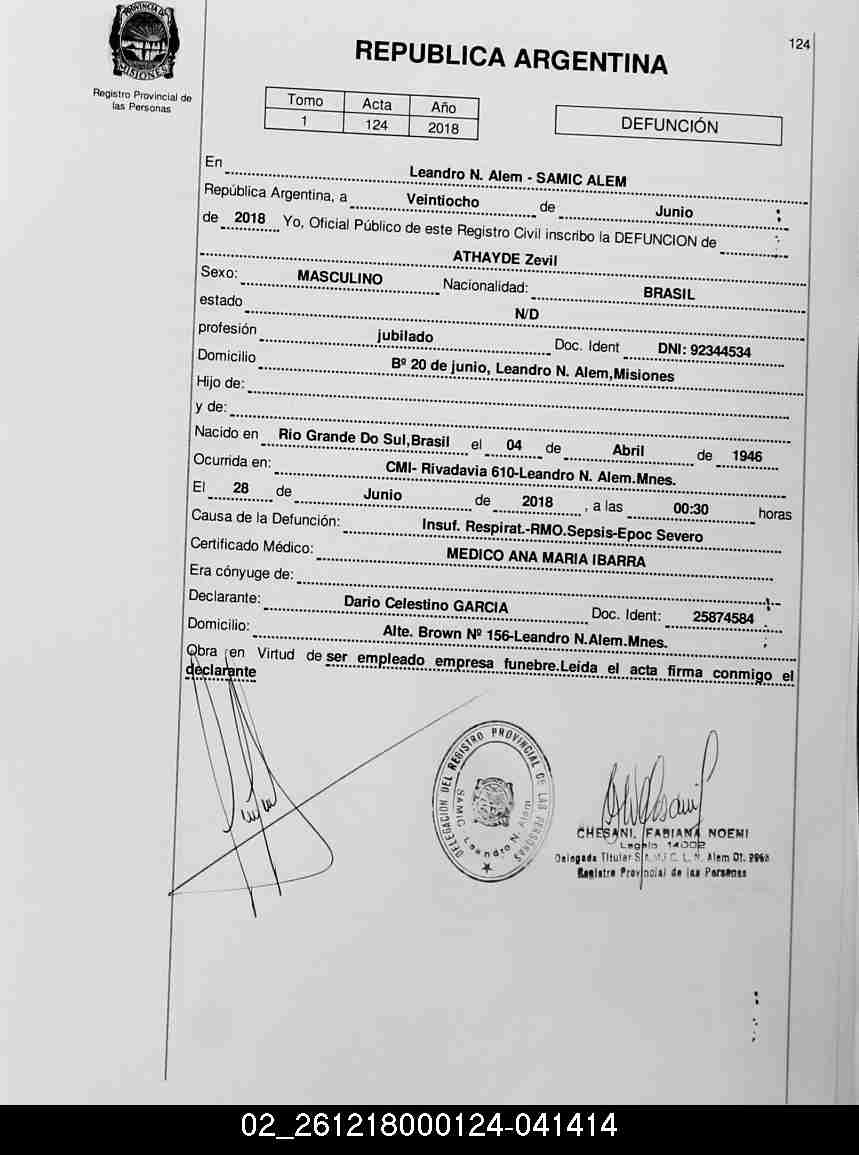 PROVINCIA DE
MISIONES
Registro Provincial de
las Personas
124
REPUBLICA ARGENTINA
Tomo Acta Año
1 124 2018
DEFUNCIÓN
En Leandro N. Alem - SAMIC ALEM
República Argentina, a Veintiocho de Junio
de 2018 Yo, Oficial Público de este Registro Civil inscribo la DEFUNCION de
ATHAYDE Zevil
Sexo: MASCULINO Nacionalidad: BRASIL
estado N/D
profesión jubilado Doc. Ident DNI: 92344534
Domicilio Bº 20 de junio, Leandro N. Alem,Misiones
Hijo de:
y de:
Nacido en Rio Grande Do Sul,Brasil el 04 de Abril de 1946
Ocurrida en: CMI- Rivadavia 610-Leandro N. Alem.Mnes.
El 28 de Junio de 2018 , a las 00:30 horas
Causa de la Defunción: Insuf. Respirat.-RMO.Sepsis-Epoc Severo
Certificado Médico: MEDICO ANA MARIA IBARRA
Era cónyuge de:
Declarante: Dario Celestino GARCIA Doc. Ident: 25874584
Domicilio: Alte. Brown Nº 156-Leandro N.Alem.Mnes.
Obra en Virtud de ser empleado empresa funebre.Leida el acta firma conmigo el
declarante
DELEGACION DEL REGISTRO PROVINCIAL DE LAS PERSONAS
SAMIC Leandro N. Alem
CHESANI, FABIANA NOEMI
Legajo 14002
Delegada Titular S.A.M.I.C. L. N. Alem
Registro Provincial de las Personas
02_261218000124-041414